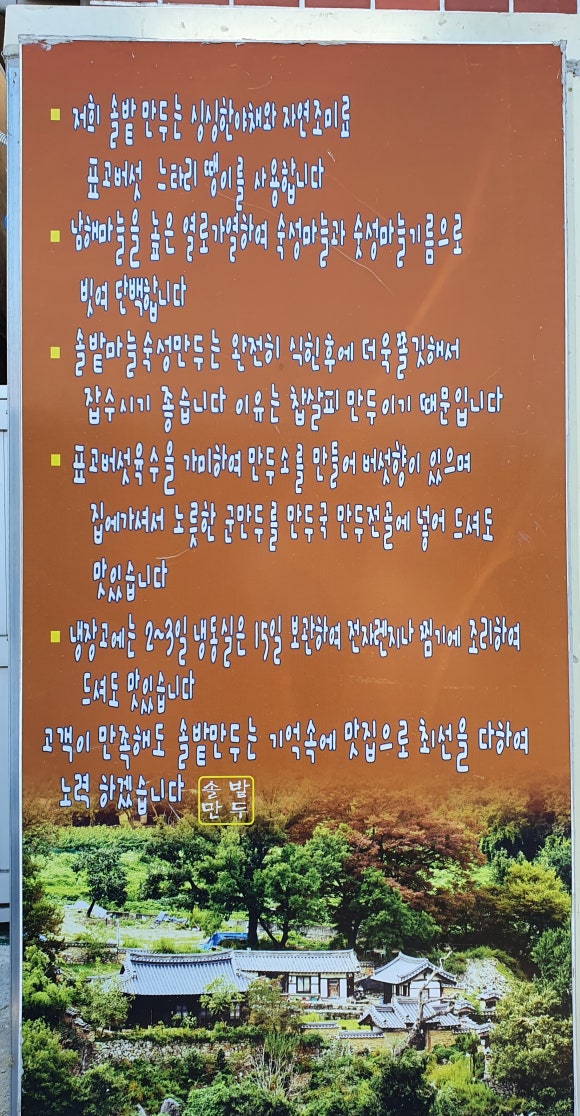 저희 솔밭 만두는 싱싱한야채와 자연조미료
표고버섯 느타리 땡이를 사용합니다
남해마늘을 높은 열로가열하여 숙성마늘과 숫성마늘기름으로
빗여 단백합니다
솔밭마늘숙성만두는 완전히 식힌후에 더욱쫄깃해서
잡수시기 좋습니다 이유는 찹쌀피 만두이기 때문입니다
표고버섯육수을 가미하여 만두소를 만들어 버섯향이 있으며
집에가셔서 노릇한 군만두를 만두국 만두전골에 넣어 드셔도
맛있습니다
냉장고에는 2~3일 냉동실은 15일 보관하여 전자렌지나 찜기에 조리하여
드셔도 맛있습니다
고객이 만족해도 솔밭만두는 기억속에 맛집으로 최선을 다하여
노력 하겠습니다 솔밭
만두